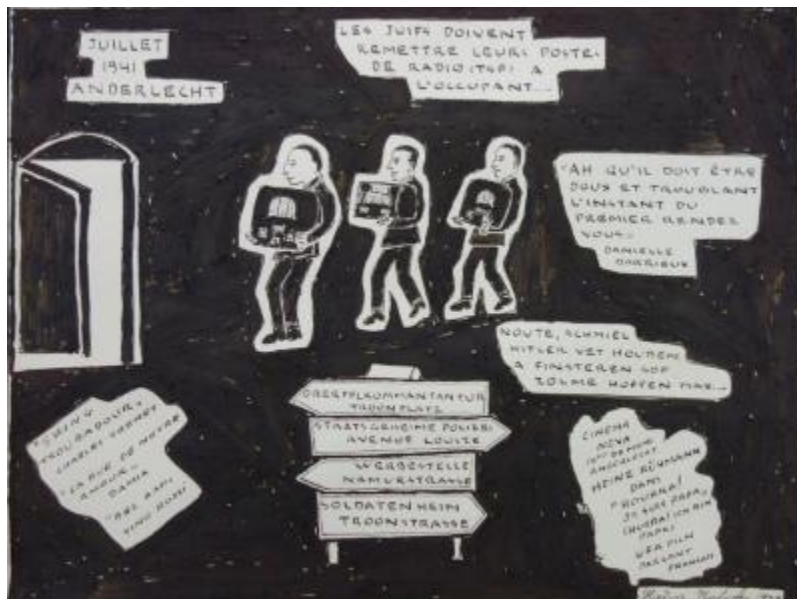 JUILLET
1941
ANDERLECHT
LES JUIFS DOIVENT
REMETTRE LEURS POSTES
DE RADIO (TSF) A
L'OCCUPANT...
"AH QU'IL DOIT ÊTRE
DOUX ET TROUBLANT
L'INSTANT DU
PREMIER RENDEZ
VOUS"
DANIELLE
DARRIEUX
NOUTE, SCHMIEL
HITLER VET HOLBEN
A FINSTEREN SOF
ZOLME HOFFEN
OBERFELKOMMANTANTUR
TROONPLATZ
STAATSGEHEIME POLIZEI
AVENUE LOUIZE
WERBESTELLE
NAMURSTRASSE
SOLDATENHEIM
TROONSTRASSE
"SWING
TROUBADOUR"
CHARLES TRENET
"LA RUE DE NOTRE
AMOUR"
DAMIA
TINO ROSSI
CINEMA
ANDERLECHT
HEINZ RÜHMANN
DANS
"HOURRA!
JE SUIS PAPA"
PAPA)
UFA FILM
PARLANT
FRANÇAIS